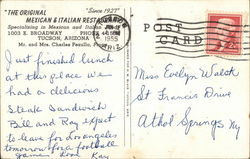 THE ORIGINAL "Since 1927"
MEXICAN & ITALIAN RESTAURANT
Specializing in Mexican and Italian
1003 E. BROADWAY PHONE
TUCSON, ARIZONA
Mr. and Mrs. Charles
1955
ARIZ.
POST
CARD
Just finished lunch
at this place we
had a delicious
Steak Sandwich
Bill and Ray expect
to leave for Los Angeles
tomorrow for a football
game. Love Kay
Miss Evelyn Walsh
St Francis Drive
Athol Springs Ny